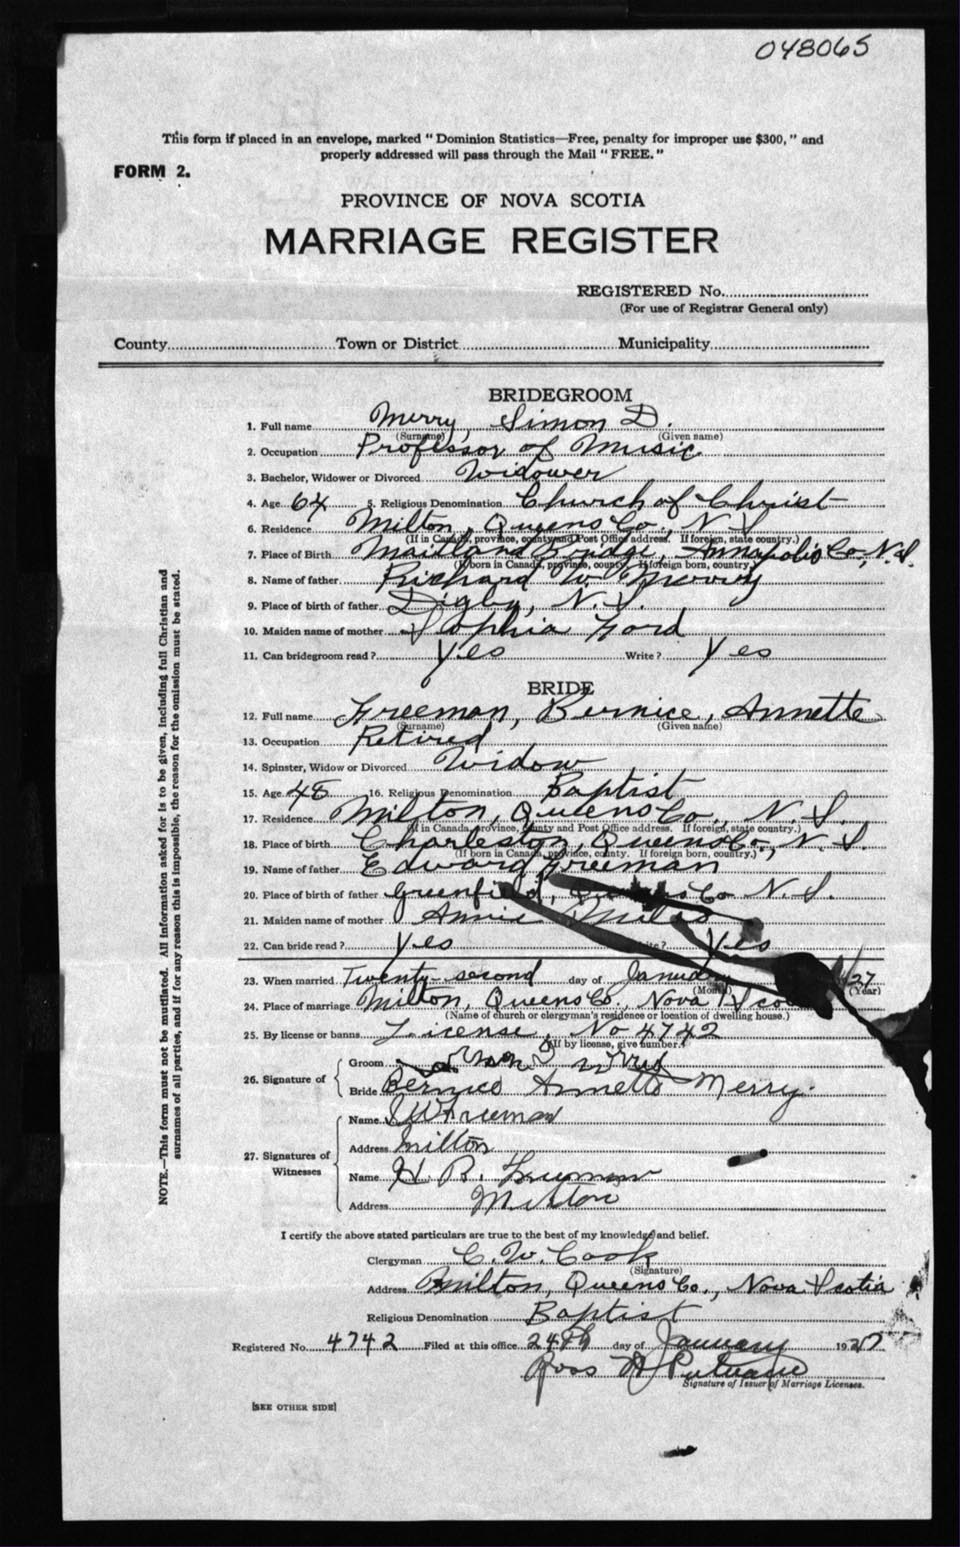 048065
This form if placed in an envelope, marked "Dominion Statistics—Free, penalty for improper use $300," and
properly addressed will pass through the Mail "FREE."
FORM 2.
PROVINCE OF NOVA SCOTIA
MARRIAGE REGISTER
REGISTERED No.
(For use of Registrar General only)
County Town or District Municipality
BRIDEGROOM
1. Full name Merry, Simon D.
(Surname) (Given name)
2. Occupation Professor of Music
3. Bachelor, Widower or Divorced Widower
4. Age 64 5. Religious Denomination Church of Christ
6. Residence Milton, Queens Co., N.S.
(If in Canada, province, county and Post Office address. If foreign, state country.)
7. Place of Birth Maitland Bridge, Annapolis Co., N.S.
(If born in Canada, province, county. If foreign born, country.)
8. Name of father Richard W. Merry
9. Place of birth of father Digby, N.S.
10. Maiden name of mother Sophia Ford
11. Can bridegroom read? Yes Write? Yes
BRIDE
12. Full name Freeman, Bernice, Annette
(Surname) (Given name)
13. Occupation Retired
14. Spinster, Widow or Divorced Widow
15. Age 48 16. Religious Denomination Baptist
17. Residence Milton, Queens Co., N.S.
(If in Canada, province, county and Post Office address. If foreign, state country.)
18. Place of birth Charleston, Queens Co., N.S.
(If born in Canada, province, county. If foreign born, country.)
19. Name of father Edward Freeman
20. Place of birth of father Greenfield, Queens Co N.S.
21. Maiden name of mother Annie
22. Can bride read? Yes Write? Yes
23. When married Twenty-second day of January 27
(Month) (Year)
24. Place of marriage Milton, Queens Co., Nova Scotia
(Name of church or clergyman's residence or location of dwelling house.)
25. By license or banns License, No 4742
(If by license, give number.)
26. Signature of
Groom Simon D Merry
Bride Bernice Annette Merry.
27. Signatures of Witnesses
Name Freeman
Address Milton
Name H. R. Freeman
Address Milton
I certify the above stated particulars are true to the best of my knowledge and belief.
Clergyman C. W. Cook
(Signature)
Address Milton, Queens Co., Nova Scotia
Religious Denomination Baptist
Registered No. 4742 Filed at this office 24th day of January 1927
Ross
Signature of Issuer of Marriage Licenses.
[SEE OTHER SIDE]
NOTE.—This form must not be mutilated. All information asked for is to be given, including full Christian and
surnames of all parties, and if for any reason this is impossible, the reason for the omission must be stated.